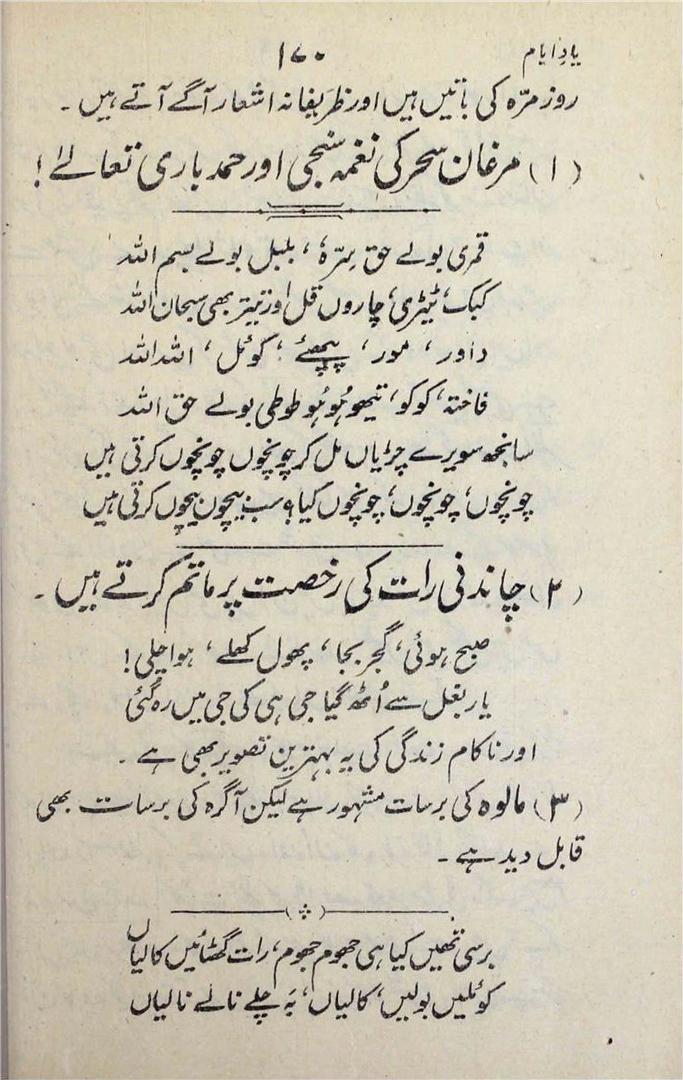 یادِ ایام ۱۷۰
روز مرّہ کی باتیں ہیں اور ظریفانہ اشعار آگے آتے ہیں ۔
(۱) مرغان سحر کی نغمہ سنجی اور حمد باری تعالےٰ !
قمری بولے حق سِرّہٗ ، بلبل بولے بسم اللہ
کبک ، ٹیٹری ، چاروں قل اور تیتر بھی سبحان اللہ
داور ، مور ، پپیہئے ، کوئل ، اللہ اللہ
فاختہ ، کوکو ، تیہو ہُو ہُو طوطی بولے حق اللہ
سانجھ سویرے چڑیاں مل کر چونچوں چونچوں کرتی ہیں
چونچوں ، چونچوں ، چونچوں کیا ؟ سب بیچون بیچوں کرتی ہیں
(۲) چاندنی رات کی رخصت پر ماتم کرتے ہیں ۔
صبح ہوئی ، گجر بجا ، پھول کھلے ، ہوا چلی !
یار بغل سے اُٹھ گیا جی ہی کی جی میں رہ گئی
اور ناکام زندگی کی یہ بہترین تصویر بھی ہے ۔
(۳) مالوہ کی برسات مشہور ہے لیکن آگرہ کی برسات بھی
قابل دید ہے ۔
برسی تھیں کیا ہی جھوم جھوم ، رات گھٹائیں کالیاں
کوئلیں بولیں ، کالیاں ، بَہ چلے نالے نالیاں